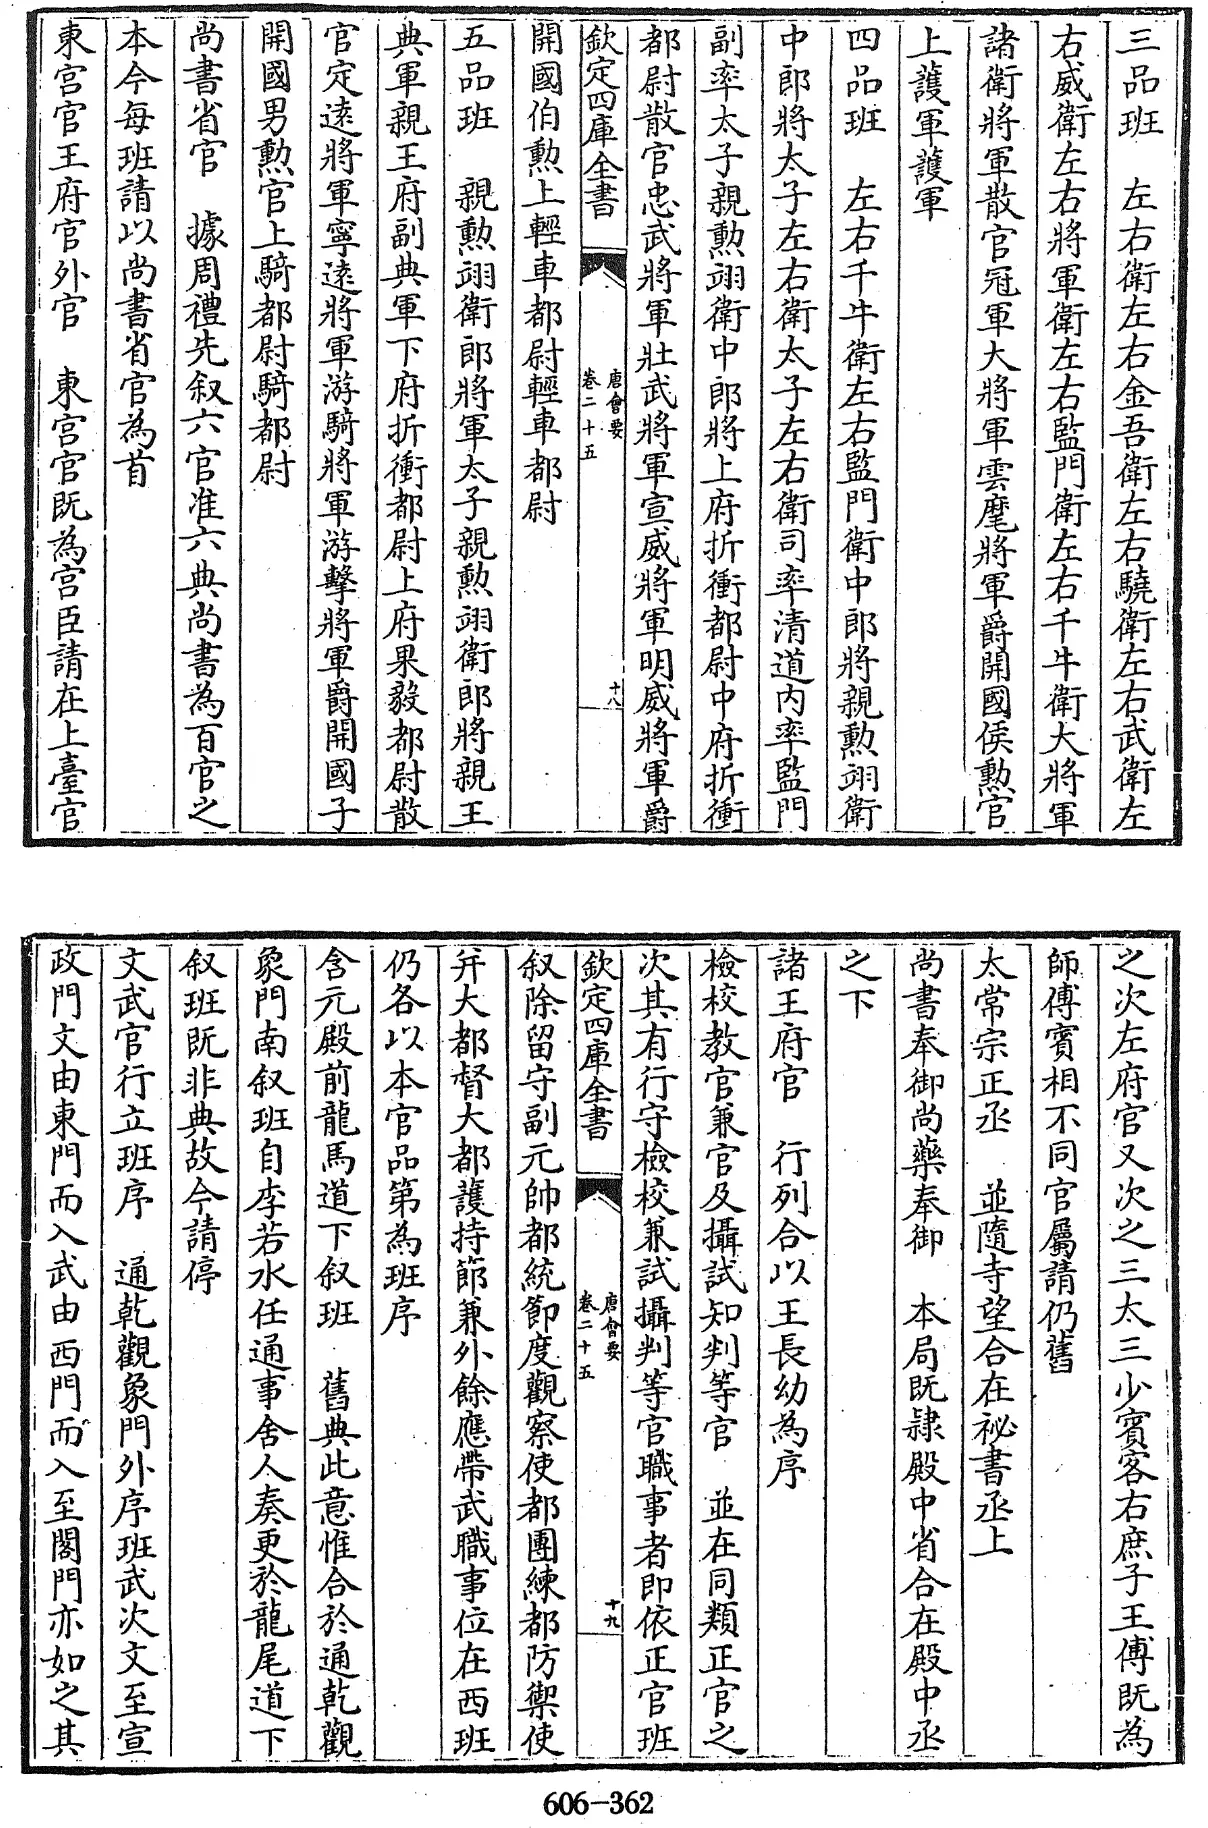 三品班　左右衛左右金吾衛左右驍衛左右武衛左
右威衛左右將軍衛左右監門衛左右千牛衛大將軍
諸衛將軍散官冠軍大將軍雲麾將軍爵開國侯勲官
上護軍護軍
四品班　左右千牛衛左右監門衛中郎將親勲翊衛
中郎將太子左右衛太子左右衛司率清道内率監門
副率太子親勲翊衛中郎將上府折衝都尉中府折衝
都尉散官忠武將軍壯武將軍宣威將軍明威將軍爵
欽定四庫全書
唐會要
卷二十五
十八
開國伯勲上輕車都尉輕車都尉
五品班　親勲翊衛郎將軍太子親勲翊衛郎將親王
典軍親王府副典軍下府折衝都尉上府果毅都尉散
官定逺將軍寧逺將軍游騎將軍游擊將軍爵開國子
開國男勲官上騎都尉騎都尉
尚書省官　據周禮先叙六官准六典尚書為百官之
本今每班請以尚書省官為首
東宫官王府官外官　東宫官既為宫臣請在上臺官
之次左府官又次之三太三少賓客右庶子王傅既為
師傅賓相不同官屬請仍舊
太常宗正丞　並隨寺望合在祕書丞上
尚書奉御尚藥奉御　本局既隸殿中省合在殿中丞
之下
諸王府官　行列合以王長幼為序
檢校教官兼官及攝試知判等官　並在同類正官之
次其有行守檢校兼試攝判等官職事者即依正官班
欽定四庫全書
唐會要
卷二十五
十九
叙除留守副元帥都統節度觀察使都團練都防禦使
并大都督大都護持節兼外餘應帶武職事位在西班
仍各以本官品第為班序
含元殿前龍馬道下叙班　舊典此意惟合於通乾觀
象門南叙班自李若水任通事舍人奏更於龍尾道下
叙班既非典故今請停
文武官行立班序　通乾觀象門外序班武次文至宣
政門文由東門而入武由西門而入至閤門亦如之其
606-362